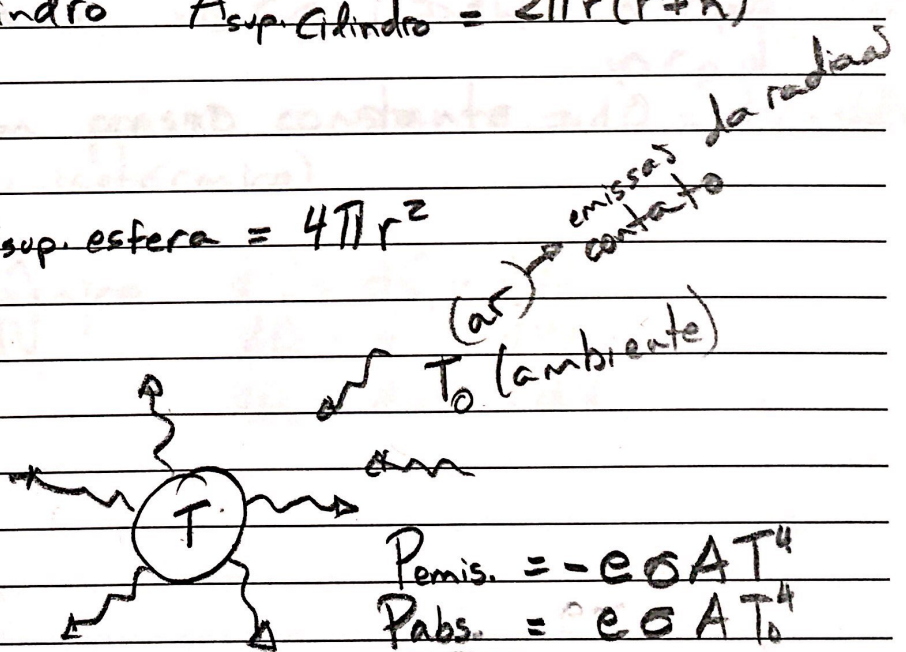 indro A sup. cilindro = 2πr(r+h)
sup. esfera = 4πr²
(ar) → emissão da radiaas
contato
T₀ (ambiente)
T
Pemis. = -eσAT⁴
Pabs. = eσAT₀⁴